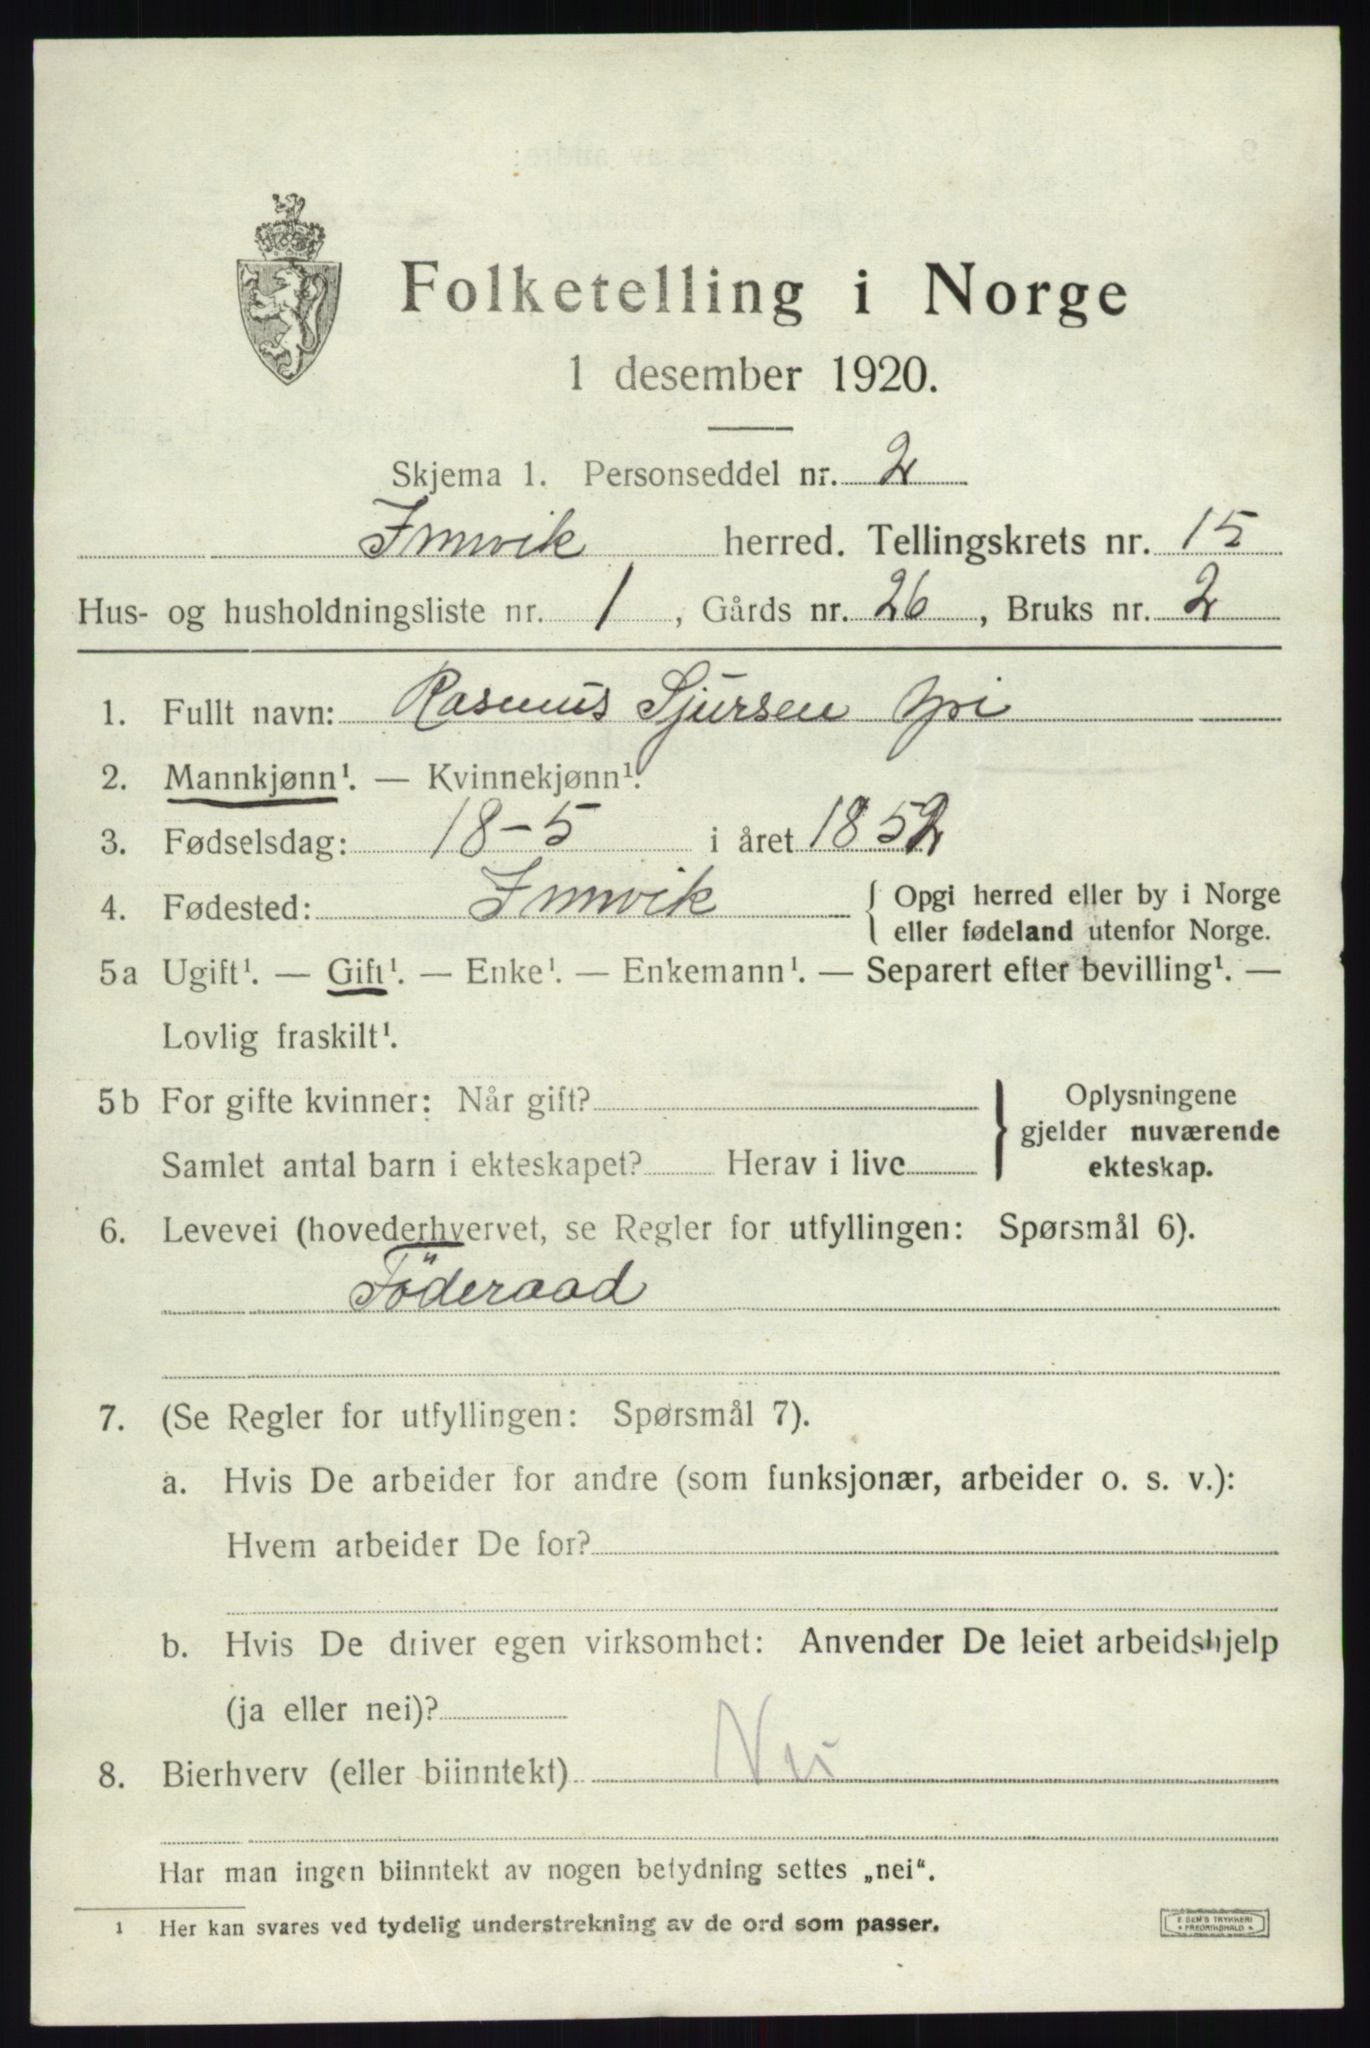 Folketelling i Norge
1 desember 1920.
Skjema 1. Personseddel nr. 2
Innvik herred. Tellingskrets nr. 15
Hus- og husholdningsliste nr. 1, Gårds nr. 26, Bruks nr. 2
1. Fullt navn: Rasmus Sjursen Yri
2. Mannkjønn¹. — Kvinnekjønn¹.
3. Fødselsdag: 18-5 i året 1852
4. Fødested: Innvik { Opgi herred eller by i Norge
eller fødeland utenfor Norge.
5a Ugift¹. — Gift¹. — Enke¹. — Enkemann¹. — Separert efter bevilling¹. —
Lovlig fraskilt¹.
5b For gifte kvinner: Når gift?
Samlet antal barn i ekteskapet? Herav i live
} Oplysningene
gjelder nuværende
ekteskap.
6. Levevei (hovederhvervet, se Regler for utfyllingen: Spørsmål 6).
Föderaad
7. (Se Regler for utfyllingen: Spørsmål 7).
a. Hvis De arbeider for andre (som funksjonær, arbeider o. s. v.):
Hvem arbeider De for?
b. Hvis De driver egen virksomhet: Anvender De leiet arbeidshjelp
(ja eller nei)?
8. Bierhverv (eller biinntekt) Nei
Har man ingen biinntekt av nogen betydning settes „nei“.
¹ Her kan svares ved tydelig understrekning av de ord som passer.
E. SEM'S TRYKKERI
FREDRIKSHALD